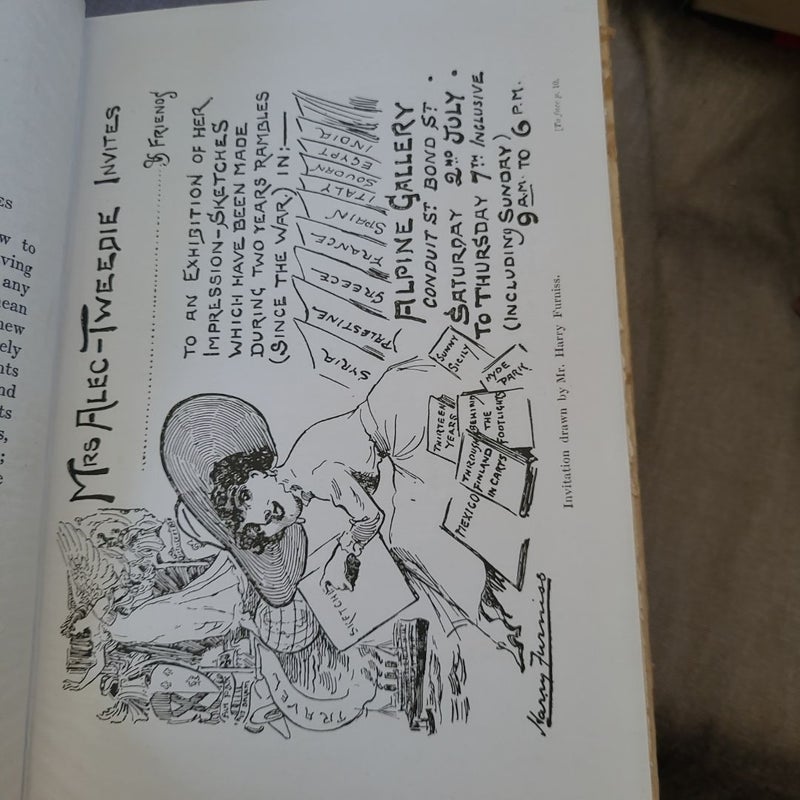 MRS ALEC-TWEEDIE INVITES
& FRIENDS
TO AN EXHIBITION OF HER
IMPRESSION-SKETCHES
WHICH HAVE BEEN MADE
DURING TWO YEARS RAMBLES
(SINCE THE WAR) IN:—
SYRIA
PALESTINE
GREECE
FRANCE
SPAIN
ITALY
SOUDAN
EGYPT
INDIA
ALPINE GALLERY
CONDUIT ST BOND ST.
SATURDAY 2ND JULY.
TO THURSDAY 7TH INCLUSIVE
(INCLUDING SUNDAY)
9 A.M. TO 6 P.M.
SUNNY
SICILY
HYDE
PARK
THIRTEEN
YEARS
BEHIND
THE
FOOTLIGHTS
THROUGH
FINLAND
IN CARTS
MEXICO
SKETCHES
TRAVEL
Harry Furniss
Invitation drawn by Mr. Harry Furniss.
[To face p. 10.
ES
w to
ving
any
ean
new
ely
nts
nd
ts
s,
;
e